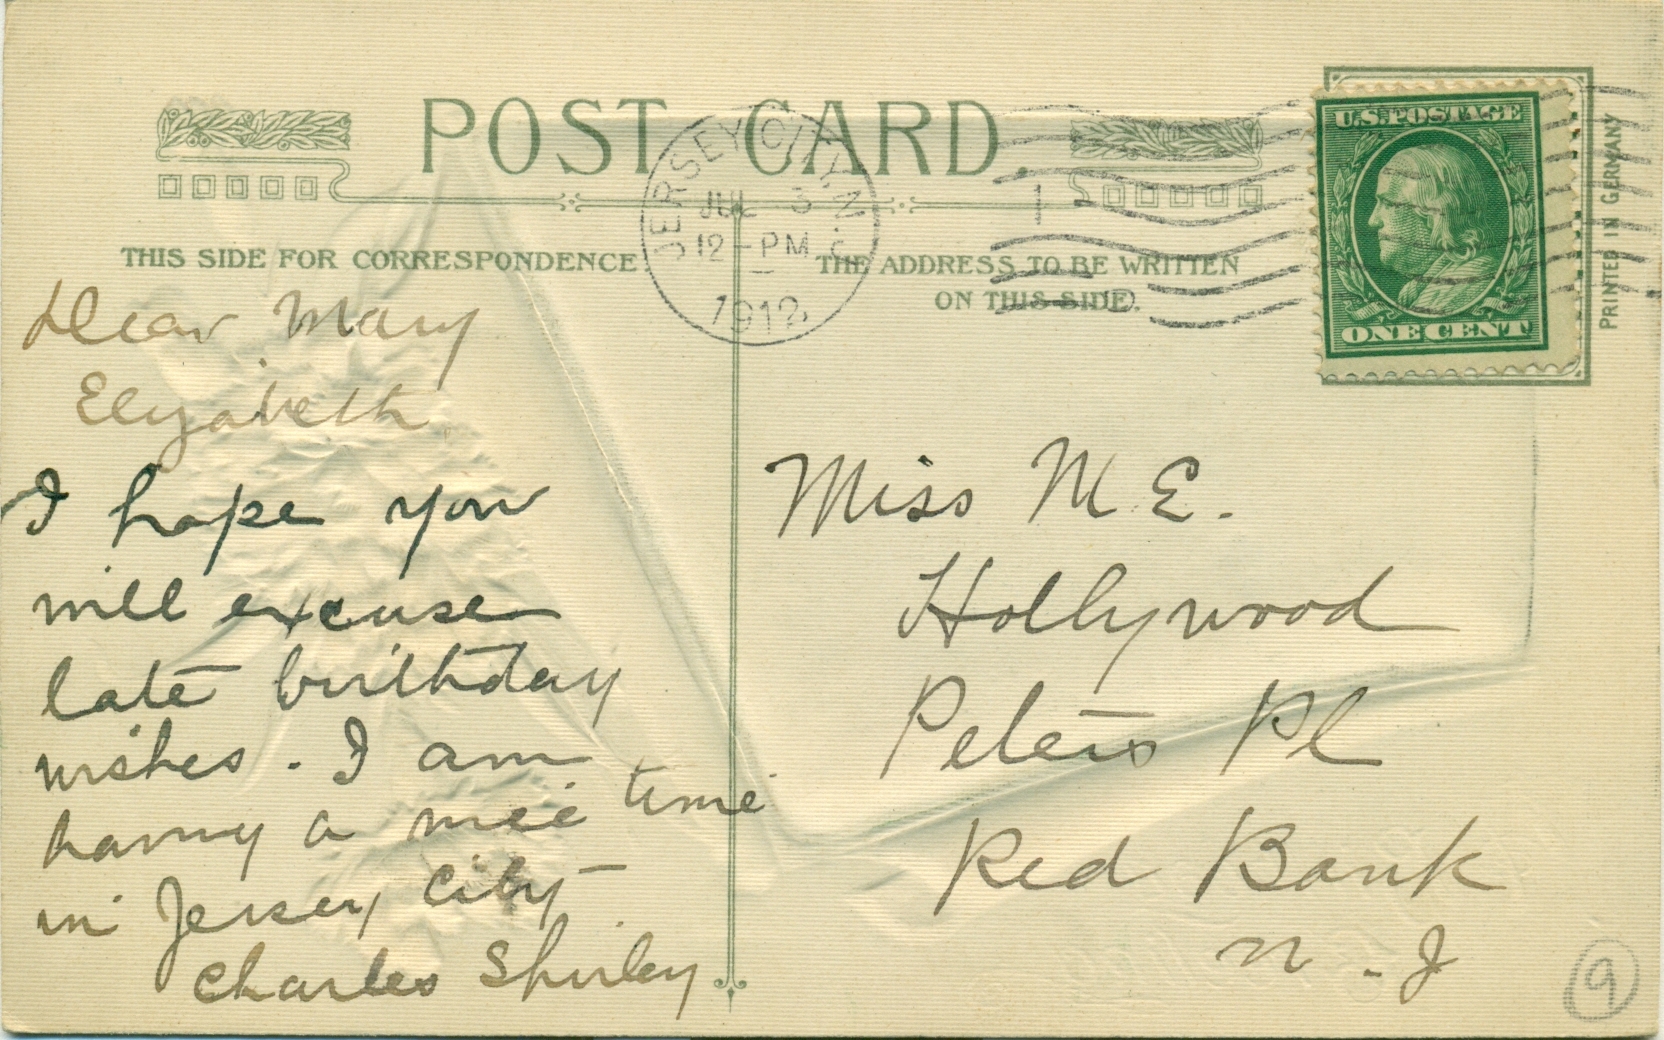 POST CARD.
THIS SIDE FOR CORRESPONDENCE
THE ADDRESS TO BE WRITTEN
ON THIS SIDE.
JERSEY CITY, N.
JUL 3
12 - PM
1912
1
U.S. POSTAGE
ONE CENT
PRINTED IN GERMANY
Dear Mary
Elizabeth
I hope you
will excuse
late birthday
wishes. I am
having a nice time
in Jersey City
Charles Shirley
Miss M E.
Hollywood
Peters Pl
Red Bank
N. J
9